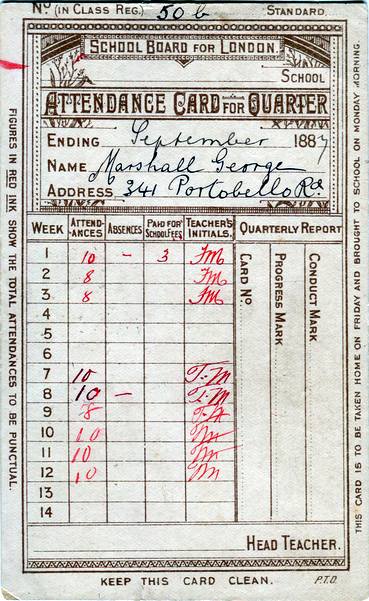 No (IN CLASS REG.) 50 b STANDARD.
SCHOOL BOARD FOR LONDON.
SCHOOL
ATTENDANCE CARD FOR QUARTER
ENDING September 1887
NAME Marshall George
ADDRESS 341 Portobello Rd
WEEK ATTEND-ANCES ABSENCES PAID FOR SCHOOL FEES TEACHER'S INITIALS. QUARTERLY REPORT
CARD No.
PROGRESS MARK
CONDUCT MARK
1 10 – 3 FM
2 8 FM
3 8 FM
4
5
6
7 10 T-M
8 10 – T-M
9 8 T-M
10 10 M
11 10 M
12 10 M
13
14
HEAD TEACHER.
KEEP THIS CARD CLEAN. P.T.O.
FIGURES IN RED INK SHOW THE TOTAL ATTENDANCES TO BE PUNCTUAL.
THIS CARD IS TO BE TAKEN HOME ON FRIDAY AND BROUGHT TO SCHOOL ON MONDAY MORNING.